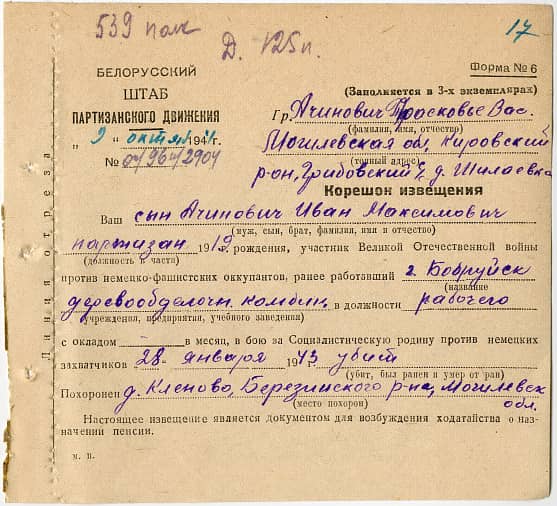 539 полк
Д. 125п.
17
БЕЛОРУССКИЙ
ШТАБ
ПАРТИЗАНСКОГО ДВИЖЕНИЯ
„ 9 “ октя 1944г.
№ 04/964/2904
Форма № 6
(Заполняется в 3-х экземплярах)
Гр. Ачинович Просковье Вас.
(фамилия, имя, отчество)
Могилевская обл, Кировский
(точный адрес)
р-он, Грибовский с/с, д. Шилаевка
Корешок извещения
Линия отреза
Ваш сын Ачинович Иван Максимович
(муж, сын, брат, фамилия, имя и отчество)
партизан 1919 рождения, участник Великой Отечественной войны
(должность и части)
против немецко-фашистских оккупантов, ранее работавший г. Бобруйск
(название
деревообделочн. комбин. в должности рабочего
учреждения, предприятия, учебного заведения)
с окладом – в месяц, в бою за Социалистическую родину против немецких
захватчиков 28 января 1943 убит
(убит, был ранен и умер от ран)
Похоронен д. Кленово, Березинского р-на, Могилевск
обл.
(место похорон)
Настоящее извещение является документом для возбуждения ходатайства о на-
значении пенсии.
м. п.